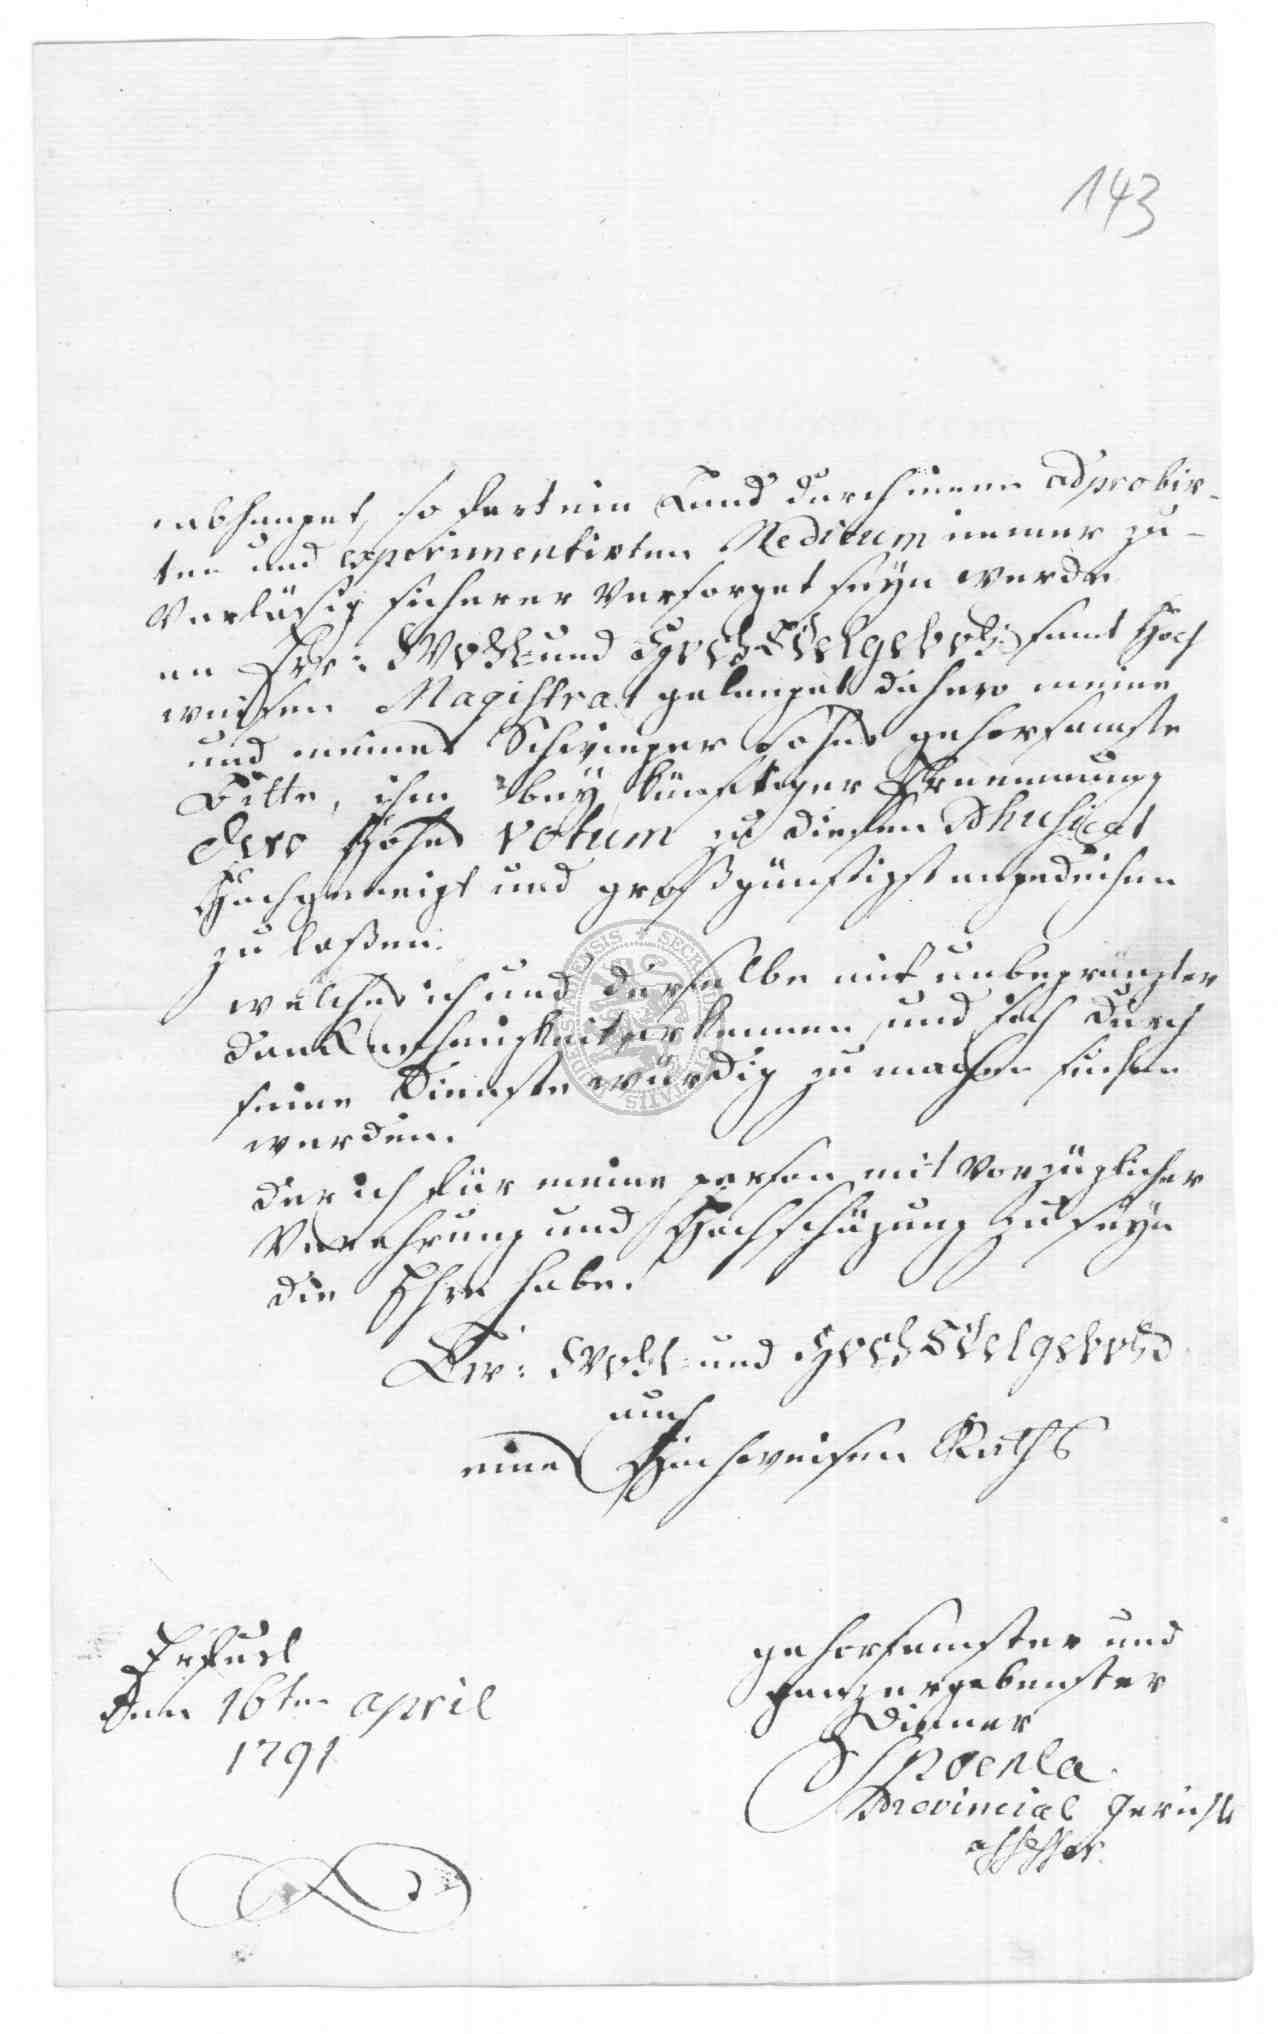 143
abhanget, so fort ein Land durch einen adprobir-
ten und experimentirten Medicum immer zu-
verläßig sicherer versorget seyn werde
an Ew: Wohl- und HochEdelgebohr: samt Hoch
weisen Magistrat gelanget dahero meine
und meines Schwieger Sohns gehorsamste
Bitte, ihm bey künftiger Ernennung
dero hohes votum zu diesem Phusicat
Hochgeneigt und großgünstigst angedeihen
zu laßen.
welches ich und derselbe mit unbegränzter
Dancknehmigkeit erkennen, und sich durch
seine Dienste würdig zu machen suchen
werden.
der ich für meine person mit vorzüglicher
Verehrung und Hochschäzung zu seyn
die Ehre habe.
Ew: Wohl- und HochEdelgebohr
auch
eines Hochweisen Raths
gehorsamster und
ganz ergebenster
Diener
Provincial Gerichts
assessor.
den 16ten april
1791